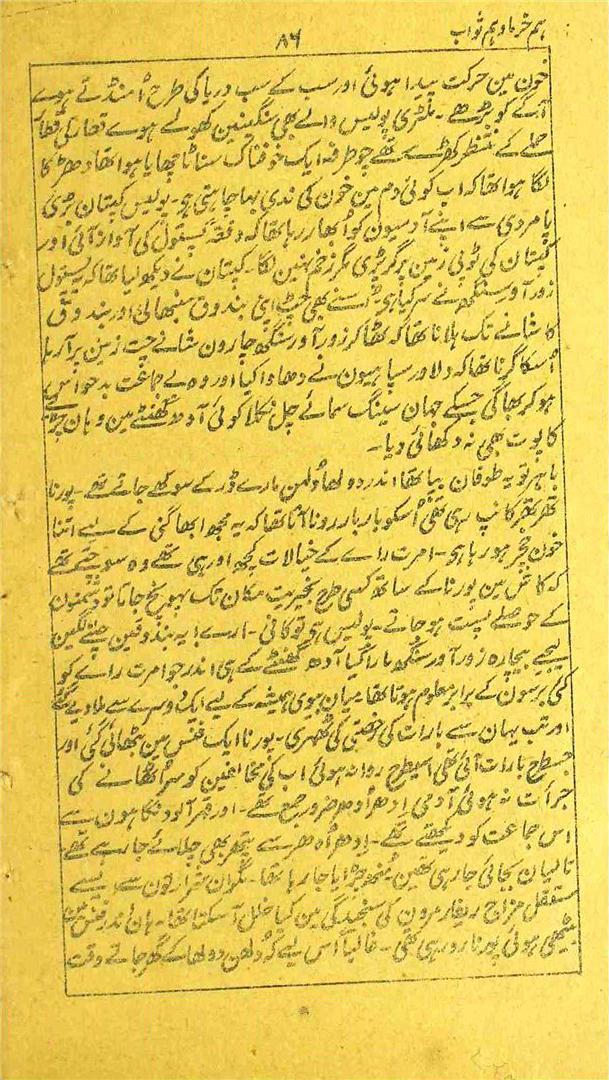 ہم خرما و ہم ثواب
۸۶
خون مین حرکت پیدا ہوئی اور سب کے سب دریا کی طرح اُمنڈتے ہوے
آگے کو بڑھے ۔ ملٹری پولیس والے بھی سنگینین کھولے ہوے قطار کی قطار
حملے کے منتظر کھڑے تھے چوطرفہ ایک خوفناک سناٹا چھایا ہوا تھا دھڑکا
لگا ہوا تھا کہ اب کوئی دم مین خون کی ندی بہا چاہتی ہو ۔ پولیس کپتان بڑی
پامردی سے اپنے آدمیون کو اُبھار رہا تھا کہ دفعتہً پستول کی آواز آئی اور
کپتان کی ٹوپی زمین پر گر پڑی مگر زخم نہین لگا ۔ کپتان نے دیکھ لیا تھا کہ پستول
زور آور سنگھ نے سر کیا ہی اُسنے بھی جھٹ اپنی بندوق سنبھالی اور بندوق
کا شانے تک لانا تھا کہ ٹھاکر زور آور سنگھ چارون شانے چت زمین پر آ رہا
اُسکا گرنا تھا کہ دلاور سپاہیون نے دھاوا کیا اور وہ بے جماعت بدحواس
ہو کر بھاگی جسکے جہان سینگ سمائے چل نکلا کوئی آدھ گھنٹے مین وہان چڑیے
کا پوت بھی نہ دکھائی دیا ۔
باہر تو یہ طوفان بپا تھا اندر دولھا دُلہن مارے ڈر کے سوکھے جاتے تھے ۔ پورنا
تھر تھر کانپ رہی تھی اُسکو بار بار رونا آتا تھا کہ یہ مجھ ابھاگنی کے لیے اتنا
خون خچر ہو رہا ہی ۔ امرت راے کے خیالات کچھ اور ہی تھے وہ سوچتے تھے
کہ کاش مین پورنا کے ساتھ کسی طرح بخیریت مکان تک پہونچ جاتا تو دشمنون
کے حوصلے پست ہو جاتے ۔ پولیس ہی تو کافی ۔ ارے! یہ بندوقین چلنے لگین
لیجیے بیچارہ زور آور سنگھ مارا گیا آدھ گھنٹے کے ہی اندر جو امرت راے کو
کئی برسون کے برابر معلوم ہوتا تھا ۔ میان بیوی ہمیشہ کے لیے ایک دوسرے سے ملا دیے گئے
اور تب یہان سے بارات کی رخصتی کی ٹھہری ۔ پورنا ایک فنس مین بٹھائی گئی اور
جسطرح بارات آئی تھی اسیطرح روانہ ہوئی اب کی مخالفین کو سر اُٹھانے کی
جرأت نہ ہوئی آدمی ادھر اُدھر ضرور جمع تھے ۔ اور قہر آلود نگاہون سے
اس جماعت کو دیکھتے تھے ۔ اِدھر اُدھر سے پتھر بھی چلائے جا رہے تھے
تالیان بجائی جا رہی تھین مُنھ چڑایا جا رہا تھا ۔ مگر ان شرارتون سے ایسے
مستقل مزاج ریفارمرون کی سنجیدگی مین کیا خلل آ سکتا تھا ۔ ہان اندر فنس مین
بیٹھی ہوئی پورنا رو رہی تھی ۔ غالباً اس لیے کہ دُلھن دولھا کے گھر جاتے وقت